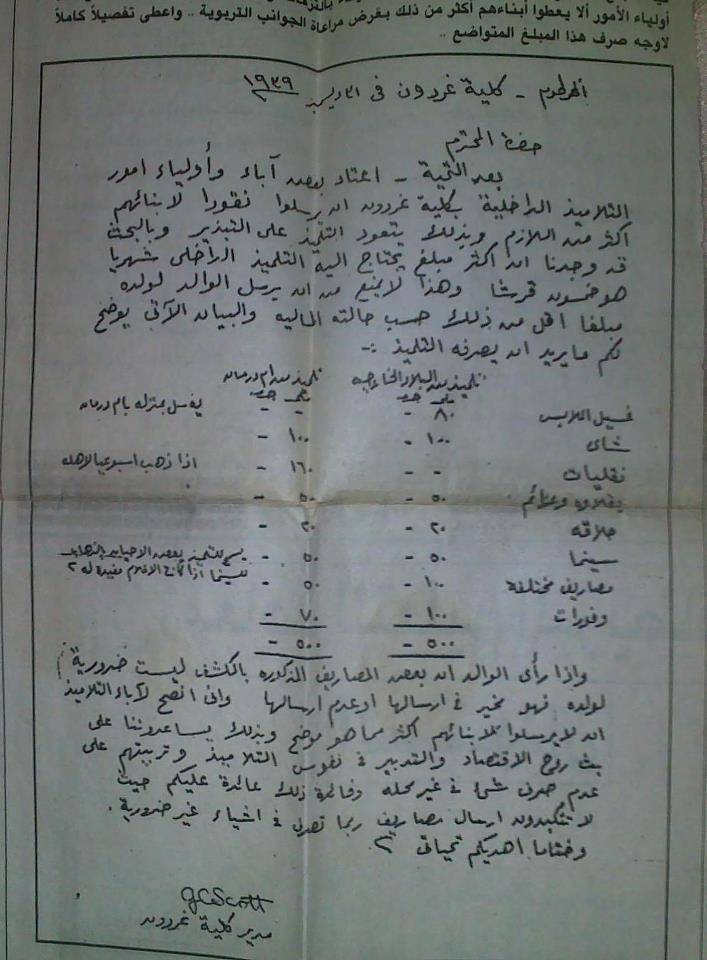 أولياء الأمور ألا يعطوا أبناءهم أكثر من ذلك بغرض مراعاة الجوانب التربوية .. واعطى تفصيلاً كاملاً
لاوجه صرف هذا المبلغ المتواضع ..
الخرطوم - كلية غردون فى ٣١ ديسمبر ١٩٣٩
حضرة المحترم
بعد التحية - اعتاد بعض آباء وأولياء امور
التلاميذ الداخلية بكلية غردون ان يرسلوا نقودا لابنائهم
اكثر من اللازم وبذلك يتعود التلميذ على التبذير وبالبحث
قد وجدنا ان اكثر مبلغ يحتاج اليه التلميذ الداخلى شهريا
هو خمسون قرشا وهذا لا يمنع من ان يرسل الوالد لولده
مبلغا اقل من ذلك حسب حالته الماليه والبيان الآتى يوضح
لكم ما يريد ان يصرفه التلميذ :-
تلميذ من البلاد الخارجيه تلميذ من ام درمان
مليم جنيه مليم جنيه
غسيل الملابس ٨٠ - يغسل بمنزله بام درمان
شاى ١٠٠ - ١٠٠ -
نقليات - - ١٦٠ - اذا ذهب اسبوعيا لاهله
بقلاوه وعزائم ٥٠ - ٥٠ -
حلاقه ٢٠ - ٢٠ -
سينما ٥٠ - ٥٠ - يسمح للتلميذ بعض الاحيان بالذهاب
للسينما اذا كانت الافلام مفيدة له
مصاريف مختلفة ١٠٠ - ٥٠ -
وفورات ١٠٠ - ٧٠ -
٥٠٠ - ٥٠٠ -
واذا رأى الوالد ان بعض المصاريف المذكوره بالكشف ليست ضرورية
لولده فهو مخير فى ارسالها او عدم ارسالها وانى انصح لآباء التلاميذ
ان لا يرسلوا لابنائهم اكثر مما هو موضح وبذلك يساعدوننا على
بث روح الاقتصاد والتدبير فى نفوس التلاميذ وتربيتهم على
عدم صرف شئ فى غير محله وفائدة ذلك عائدة عليكم حيث
لا تتكبدون ارسال مصاريف ربما تصرف فى اشياء غير ضرورية .
وختاما اهديكم تحياتى
G C Scott
مدير كلية غردون